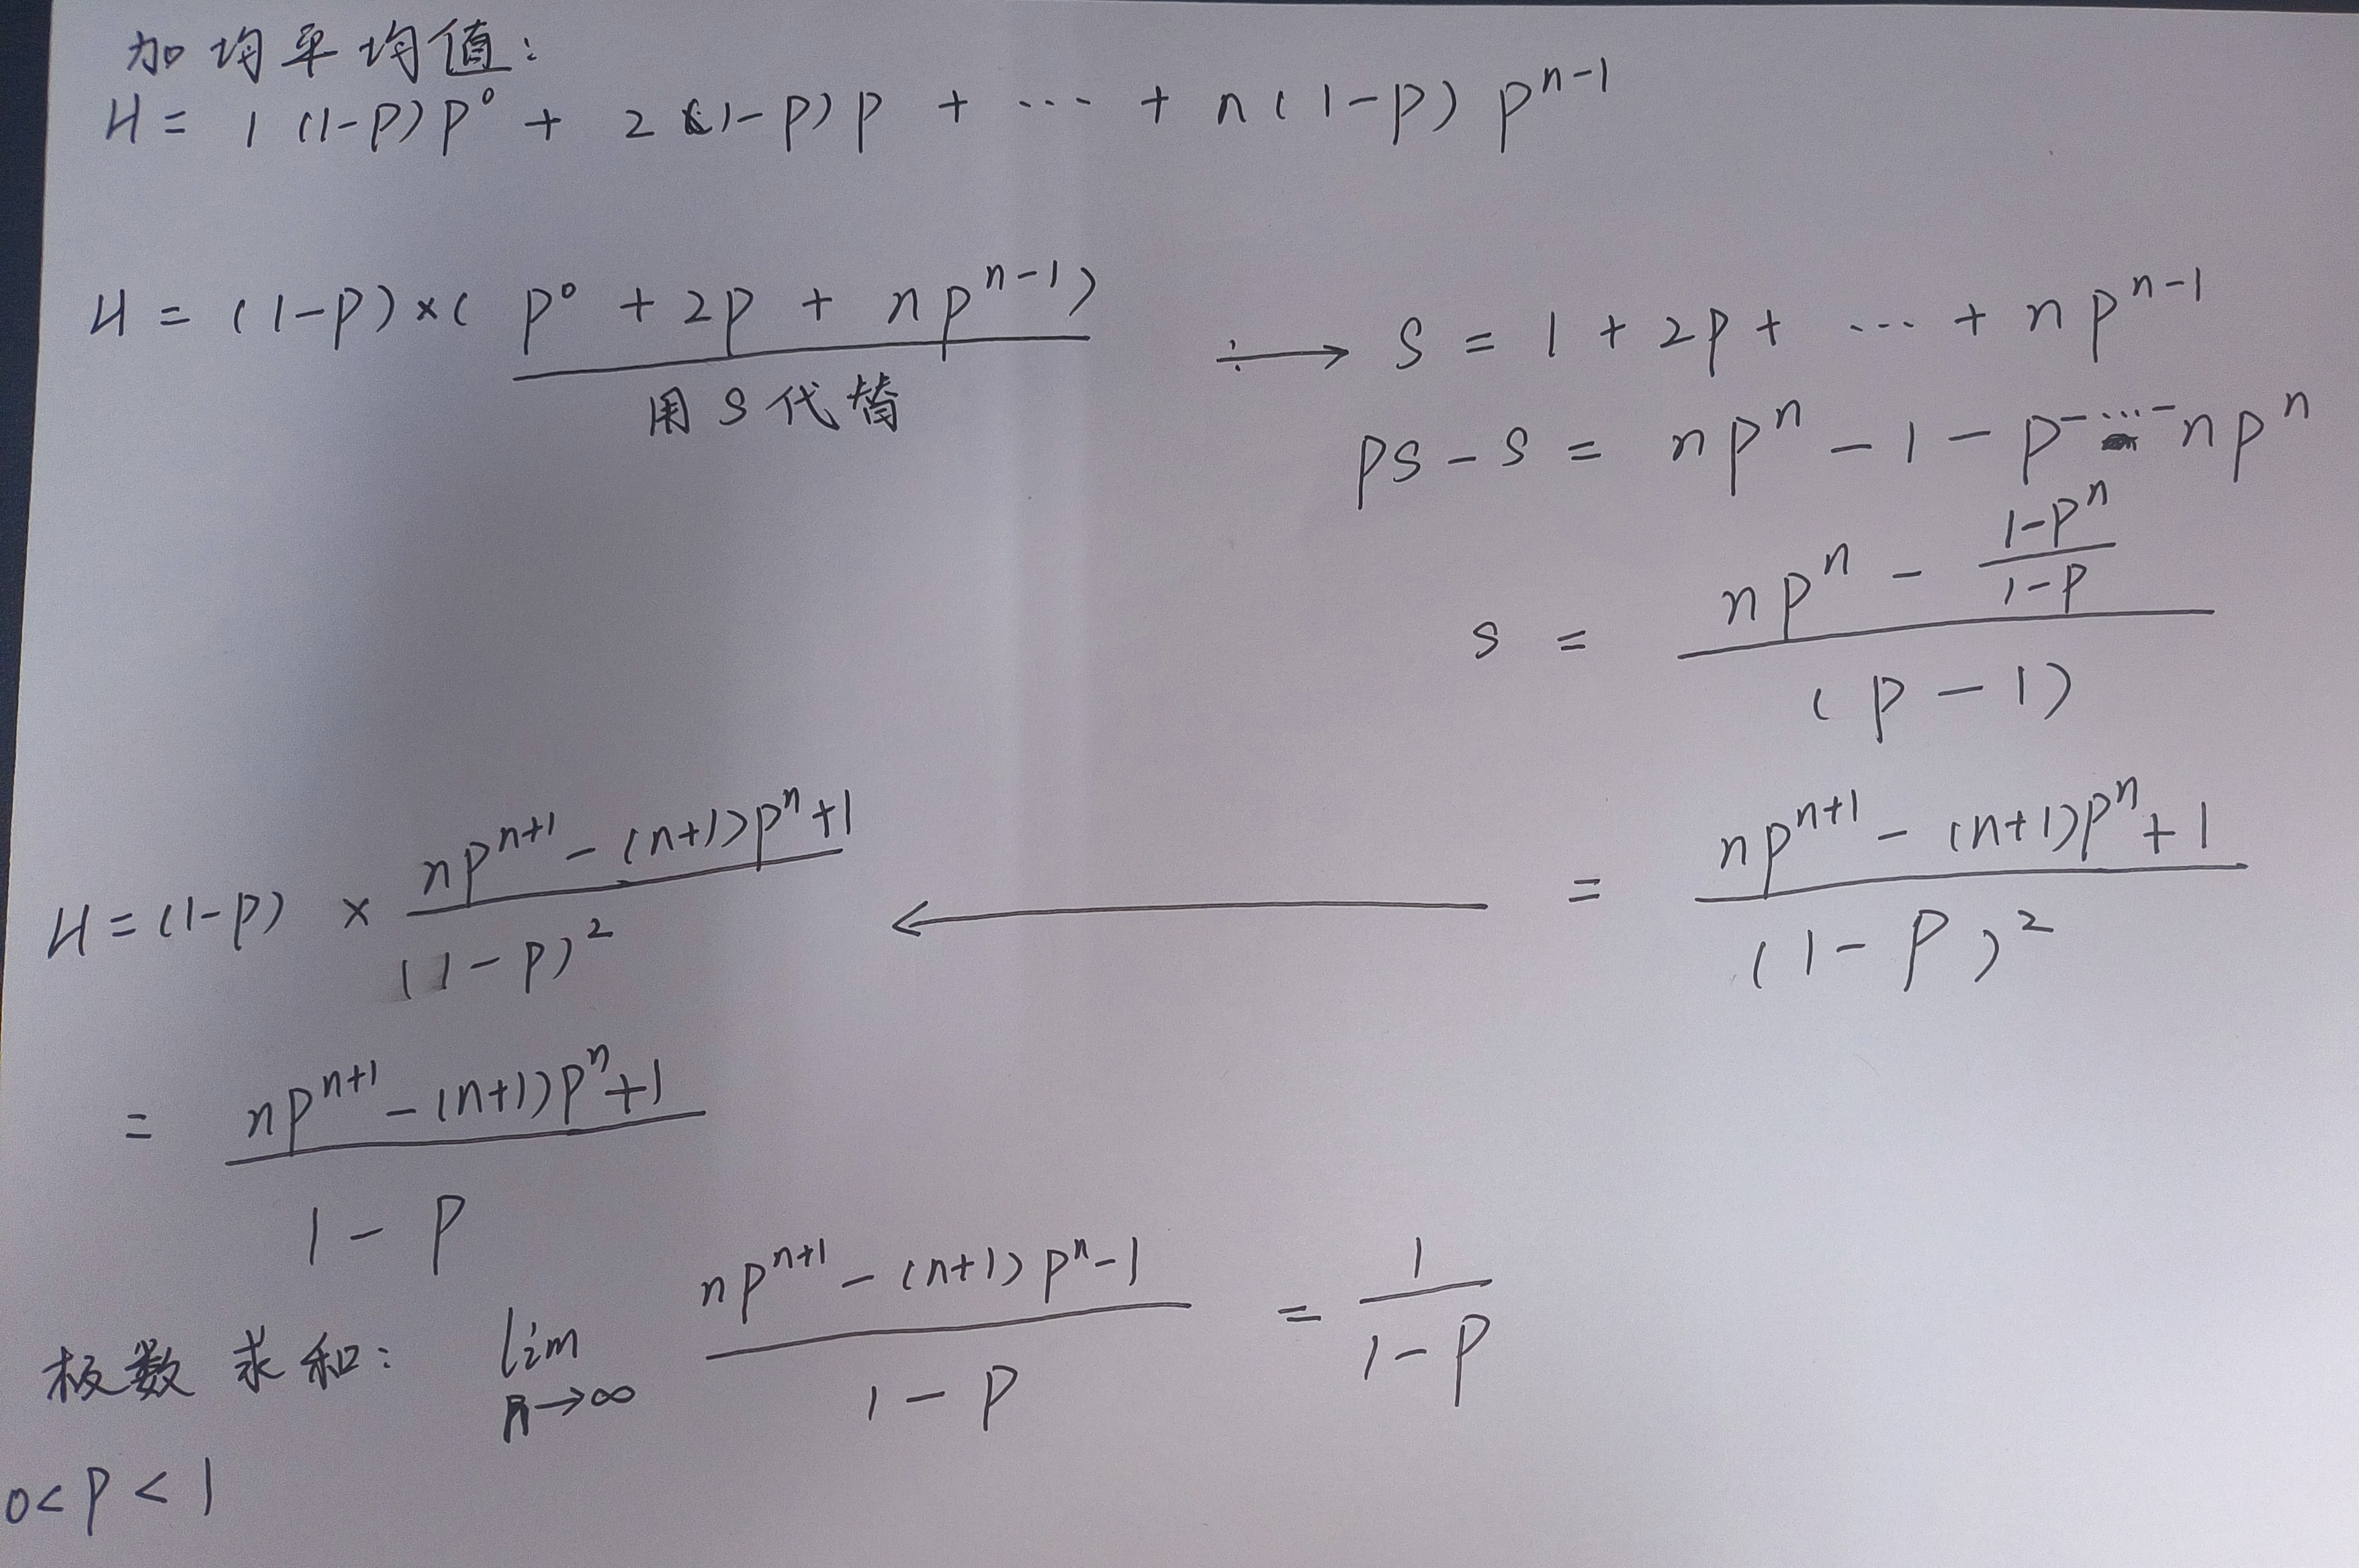 加均平均值:
H = 1(1-P)P⁰ + 2(1-P)P + ... + n(1-P)Pⁿ⁻¹
H = (1-P)×(P⁰ + 2P + nPⁿ⁻¹)
用S代替
→ S = 1 + 2P + ... + nPⁿ⁻¹
PS - S = nPⁿ - 1 - P - ... - nPⁿ
S = (nPⁿ - (1-Pⁿ)/(1-P)) / (P-1)
= (nPⁿ⁺¹ - (n+1)Pⁿ + 1) / (1-P)²
←
H = (1-P) × (nPⁿ⁺¹ - (n+1)Pⁿ + 1) / (1-P)²
= (nPⁿ⁺¹ - (n+1)Pⁿ + 1) / (1-P)
极数求和: lim n→∞ (nPⁿ⁺¹ - (n+1)Pⁿ - 1) / (1-P) = 1 / (1-P)
0<P<1